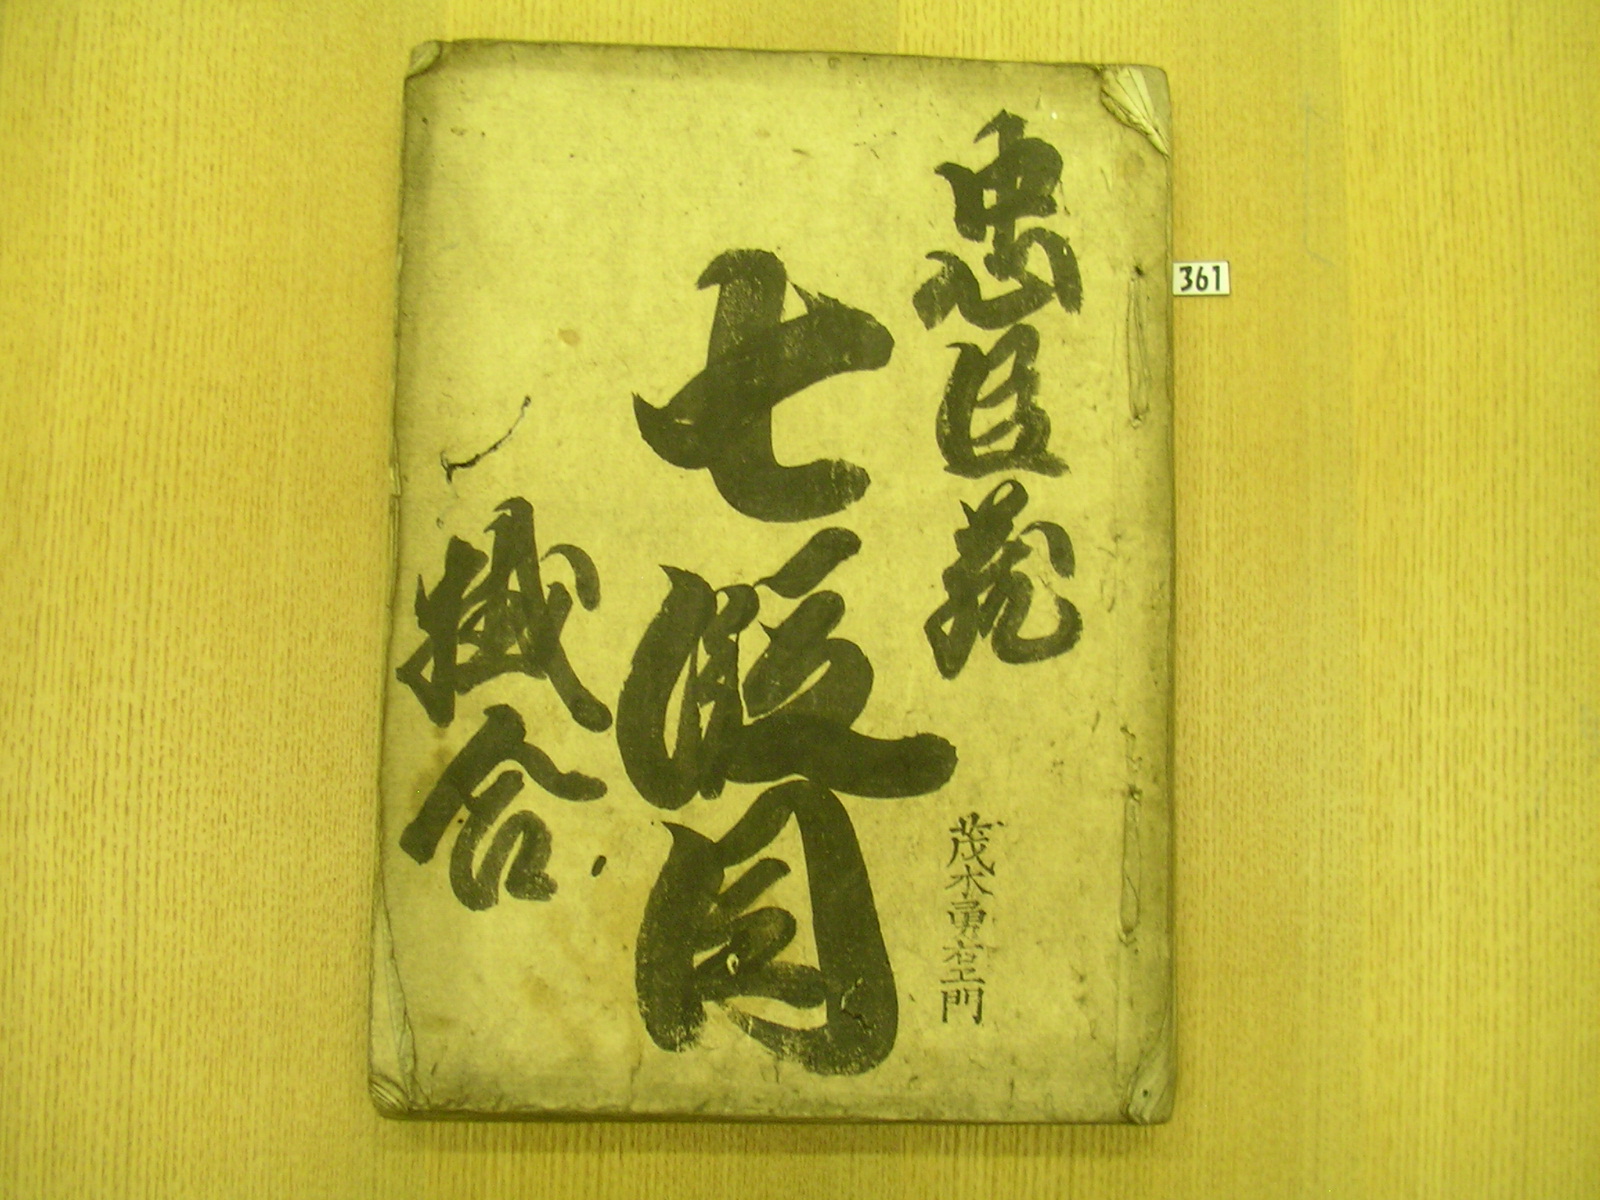 忠臣蔵
七段目
掛合
茂木勇右エ門
361